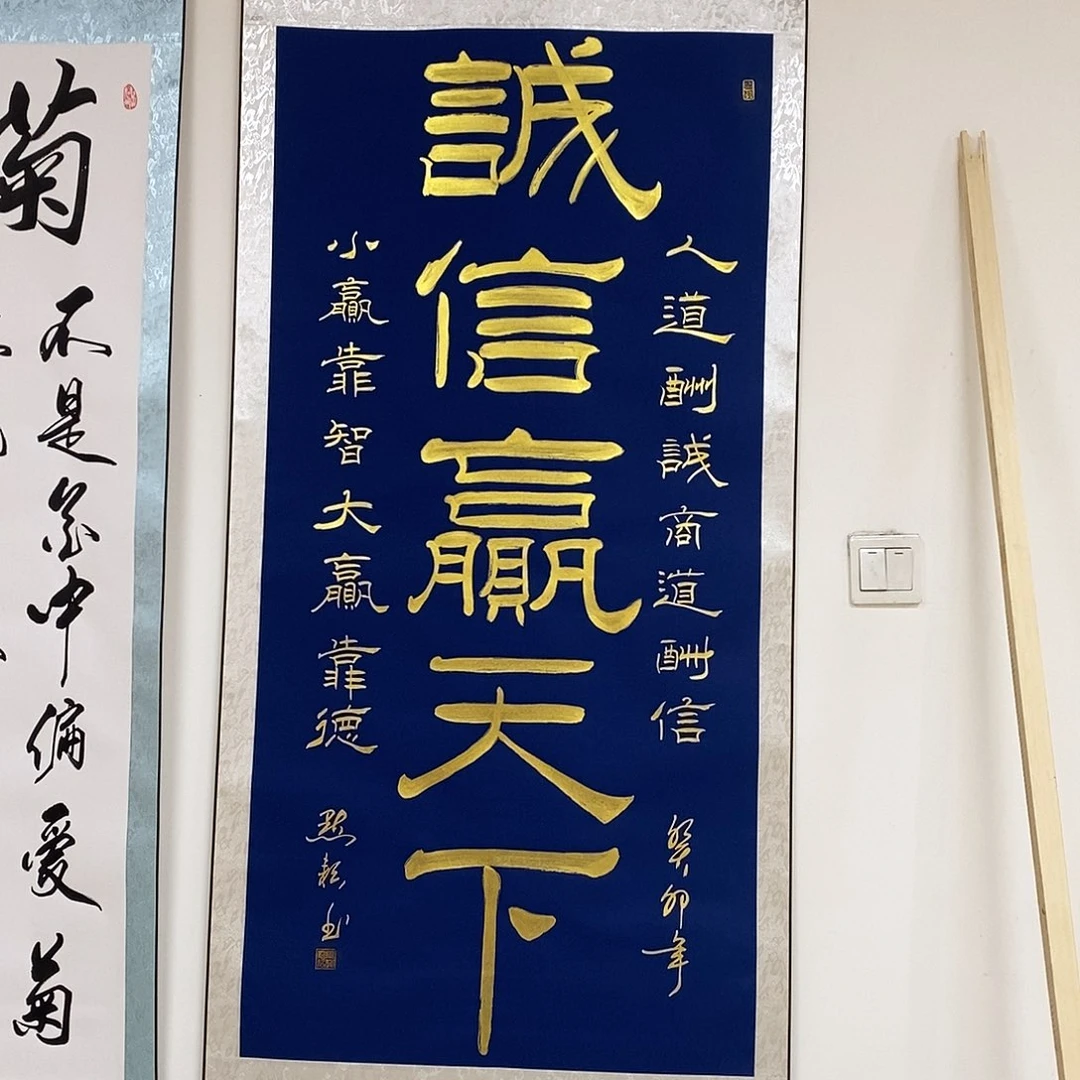 人道酬誠商道酬信
癸卯年
誠信贏天下
小贏靠智大贏靠德
默 书
菊
不是花中偏愛菊